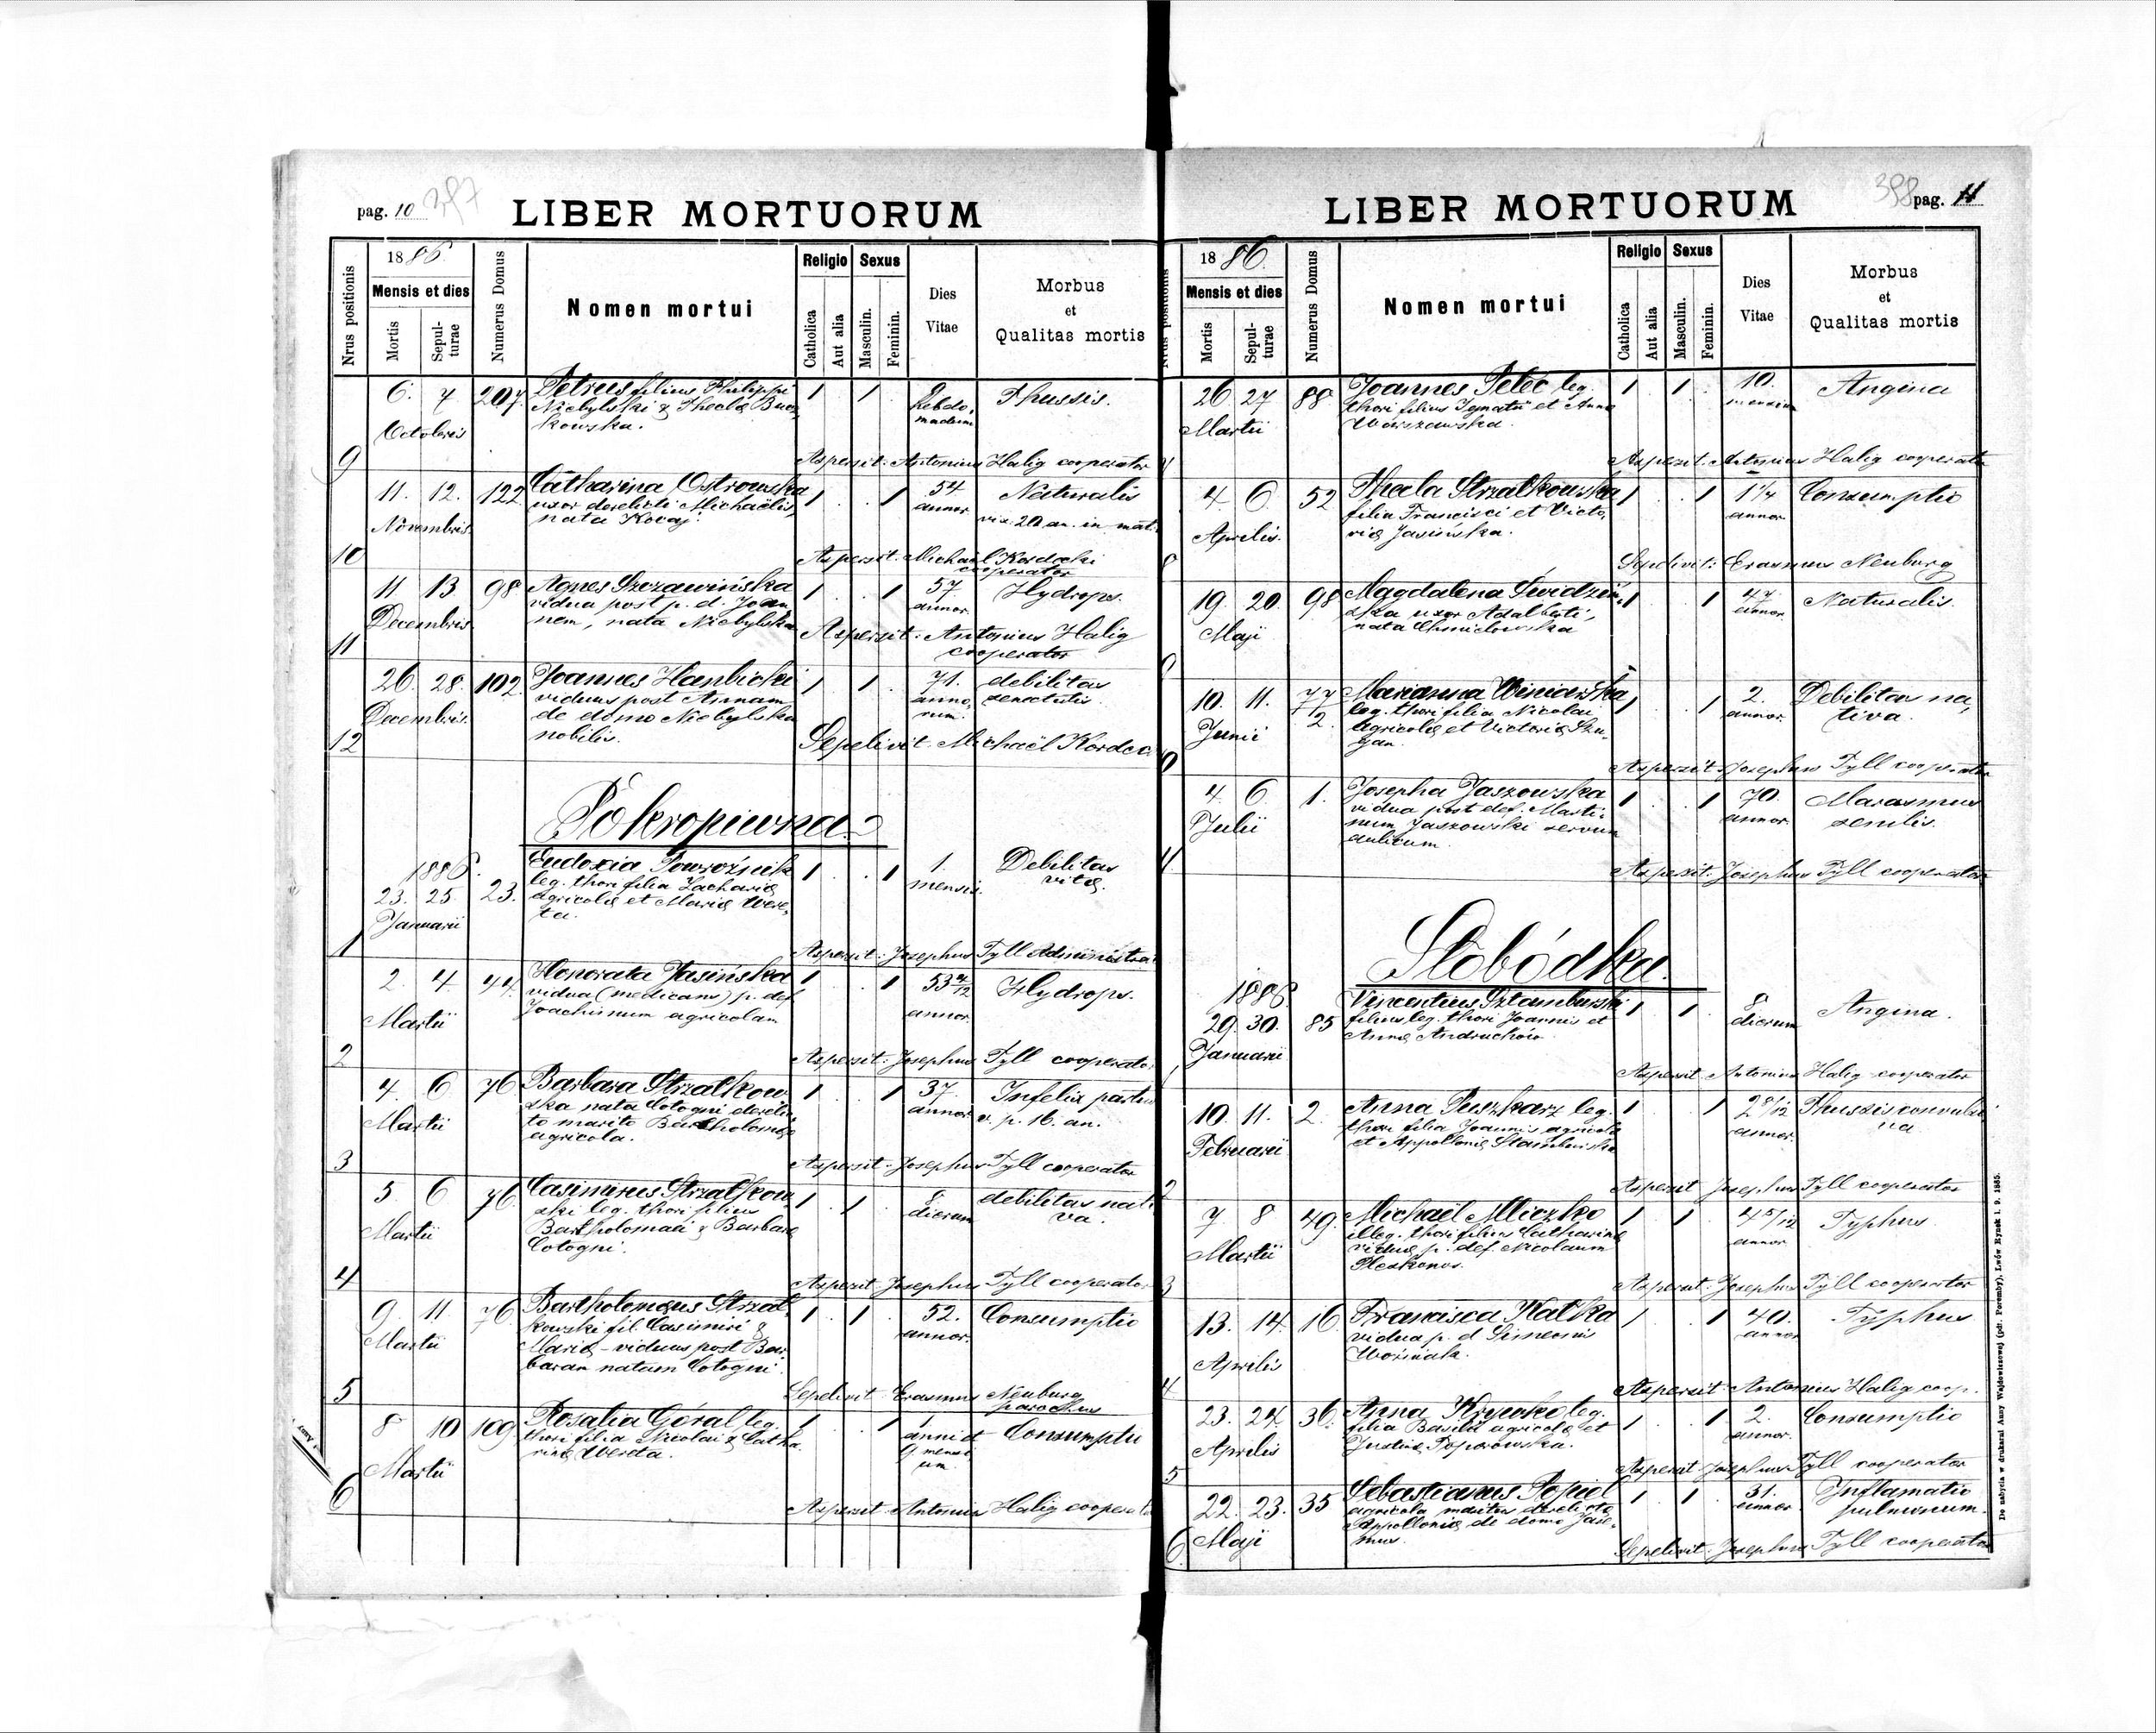 pag. 10 387
LIBER MORTUORUM
Nrus positionis
1886
Mensis et dies
Mortis
Sepulturae
Numerus Domus
Nomen mortui
Religio
Catholica
Aut alia
Sexus
Masculin.
Feminin.
Dies
Vitae
Morbus
et
Qualitas mortis
9
6. 7 207 Petrus filius Philippi 1 1 2 Thussis.
Niebylski & Theclae Bucz
kowska.
hebdo,
madum
Octobris
Aspersit: Antonius Halig cooperator
10
11. 12. 122 Catharina Ostrowska 1 1 54 Naturalis
uxor derelicti Michaëlis, annor. vix. 20 an. in mat.
nata Kocaj.
Novembris.
Aspersit: Michaël Kordecki
cooperator
11
11 13. 98 Agnes Szczawińska 1 1 57. Hydrops.
vidua post p. d. Joan annor.
nem, nata Niebylska
Decembris
Aspersit: Antonius Halig
cooperator
12
26. 28. 102. Joannes Hanbicki 1 1 71. debilitas
viduus post Annam anno, senectutis.
de domo Niebylska rum.
nobilis.
Decembris.
Sepelivit: Michaël Kordec
Pokropiwna
1
1886.
23. 25 23. Eudoxia Powroźnik 1 1 1. Debilitas
leg. thori filia Zachariae mensis. vitae.
agricolae et Mariae Were,
ta.
Januarii
Aspersit: Josephus Tyll Administra
2
2. 4. 44. Honorata Jasińska 1 1 53 4/12 Hydrops.
vidua (medicans) p. def annor.
Joachimum agricolam
Martii
Aspersit: Josephus Tyll cooperator
3
4. 6 76 Barbara Strzałkow 1 1 37. Infelix partus
ska nata Cotogni derelic annor. v. p. 16. an.
to marito Bartholomaeo
agricola.
Martii
Aspersit: Josephus Tyll cooperator
4
5. 6 76. Casimirus Strzałkow 1 1 8 debilitas nati
ski leg. thori filius dierum va.
Bartholomaei & Barbarae
Cotogni.
Martii
Aspersit: Josephus Tyll cooperator
5
9. 11. 76. Bartholomaeus Strzał 1 1 52. Consumptio
kowski fil. Casimiri & annor.
Mariae - viduus post Bar
baram natam Cotogni
Martii
Sepelivit Erasmus Neuburg
parochus
6
8 10 109 Rosalia Góral leg. 1 1 1. Consumptio
thori filia Nicolai & Catha anni et
rinae Wereta. 9 mensi
um.
Martii
Aspersit: Antonius Halig cooperato
398 pag. 11
LIBER MORTUORUM
Nrus positionis
1886.
Mensis et dies
Mortis
Sepulturae
Numerus Domus
Nomen mortui
Religio
Catholica
Aut alia
Sexus
Masculin.
Feminin.
Dies
Vitae
Morbus
et
Qualitas mortis
26. 27 88 Joannes Peteć leg. 1 1 10. Angina
thori filius Ignatii et Annae mensium
Warszawska.
Martii
Aspersit: Antonius Halig cooperator
4 6 52 Thecla Strzałkowska 1 1 1 1/4 Consumptio
filia Francisci et Victo, annor.
riae Jasińska.
Aprilis.
Sepelivit: Erasmus Neuburg
19. 20. 98 Magdalena Świdziń 1 1 47. Naturalis.
ska uxor Adalberti, annor.
nata Chmielowska
Maji
10. 11. 77/2. Marianna Winiarska 1 1 2. Debilitas na,
leg. thori filia Nicolai annor. tiva.
agricolae et Victoriae Szu,
gan.
Junii
Aspersit: Josephus Tyll cooperator
4. 6. 1. Josepha Jaszowska 1 1 70. Marasmus
vidua post def. Marti annor. senilis.
num Jaszowski servum
aulicum.
Julii
Aspersit: Josephus Tyll cooperator
Słobódka
1886.
29. 30. 85 Vincentius Sztamburski 1 1 8 Angina.
filius leg. thori Joannis et dierum
Annae Andruchów
Januarii
Aspersit Antonius Halig cooperator
2
10. 11. 2. Anna Puszkarz leg. 1 1 2 8/12 Thussis convulsi
thori filia Joannis agricolae annor. va
et Appolloniae Stamburska
Februarii
Aspersit Josephus Tyll cooperator
3
7 8 49. Michaël Mliczko 1 1 4 5/12 Typhus.
illeg. thori filius Catharinae annor.
viduae p. def. Nicolaum
Pleskonos.
Martii
Aspersit: Josephus Tyll cooperator
4
13. 14. 16 Francisca Watka 1 1 40. Typhus
vidua p. d Simeonis annor
Woźniak.
Aprilis
Aspersit: Antonius Halig coop.
5
23. 24. 36. Anna Krywko leg. 1 1 2. Consumptio
filia Basilii agricolae et annor.
Justinae Toporowska.
Aprilis
Aspersit Josephus Tyll cooperator
6.
22. 23. 35 Sebastianus Popiel 1 1 31. Inflamatio
agricola maritus derelictae annor pulmonum.
Appolloniae de domo Jare,
mus.
Maji
Sepelivit: Josephus Tyll cooperator
Do nabycia w drukarni Anny Wajdowiczowej (pdr. Poremby). Lwów Rynek l. 9. 1885.